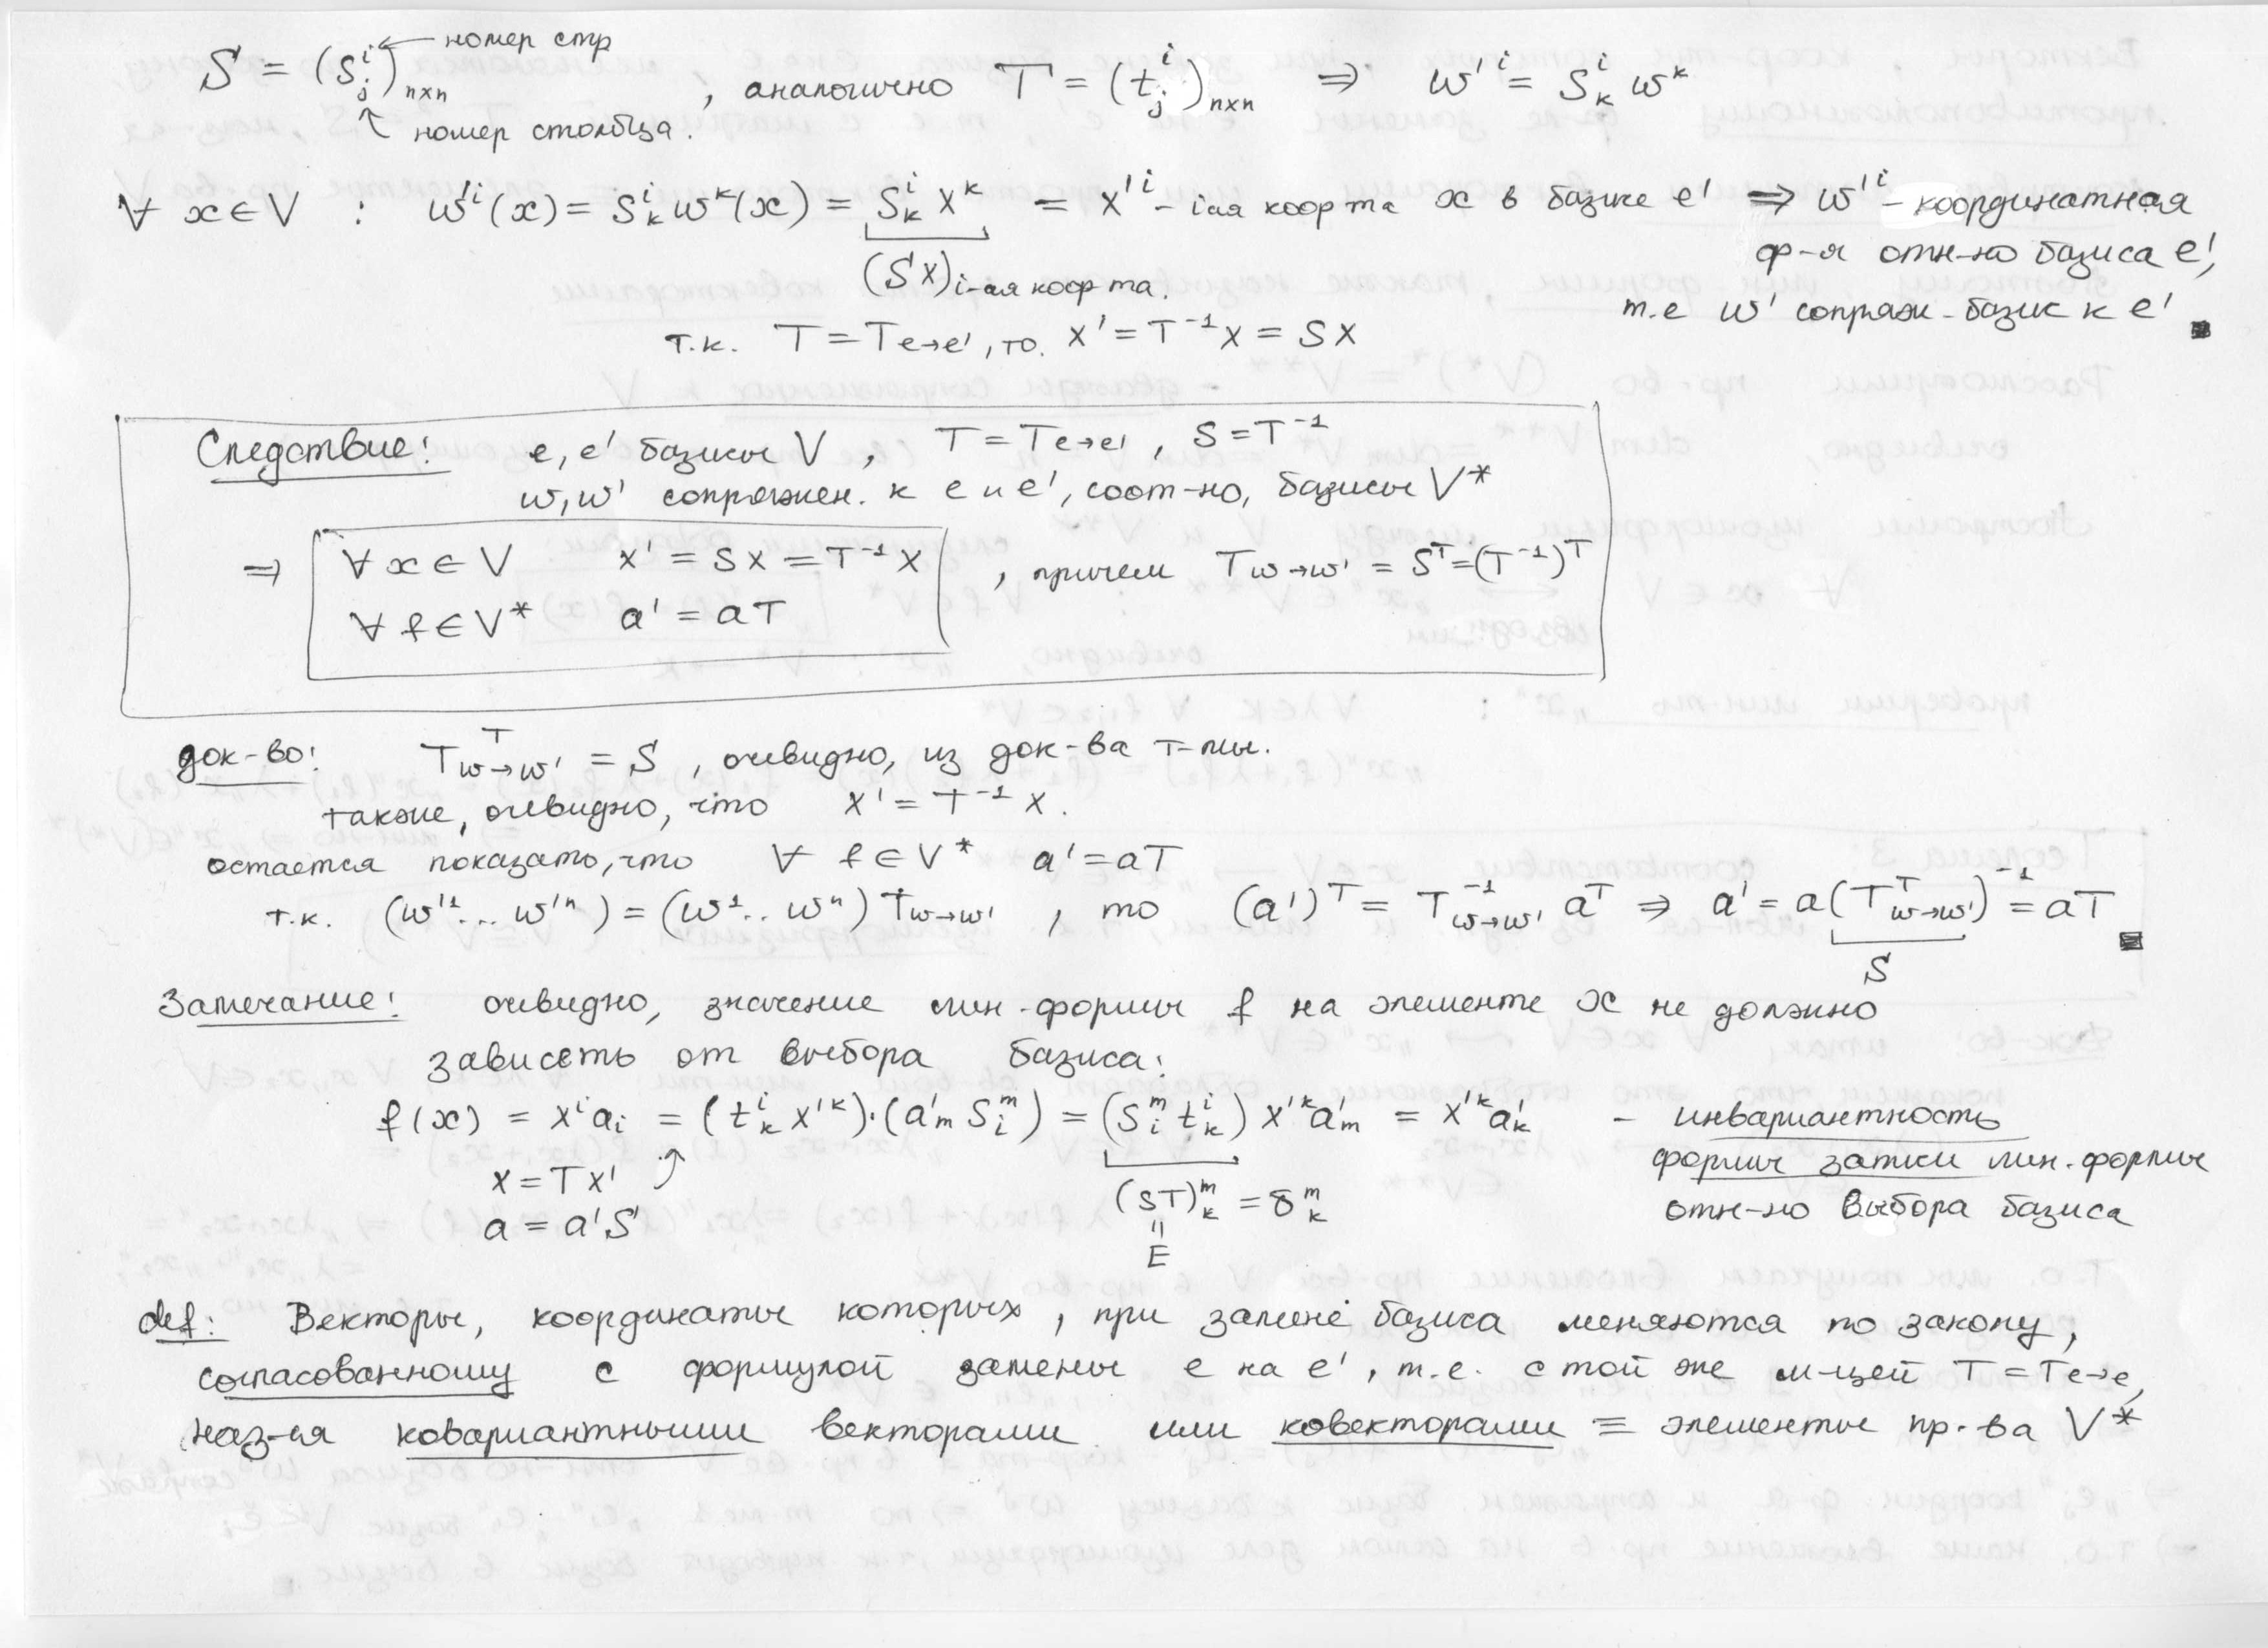 номер стр
S = (s^i_j)_{n×n} , аналогично T = (t^i_j)_{n×n} ⇒ w'^i = S^i_k w^k
номер столбца.
∀ x ∈ V : w'^i(x) = S^i_k w^k(x) = S^i_k x^k = x'^i – iая коор та x в базисе e' ⇒ w'^i – координатная
(Sx)_{i-ая коор та.} ф-я отн-но базиса e',
т.е w' сопряж. базис к e'
т.к. T = T_{e→e'}, то. x' = T^{-1}x = Sx
Следствие: e, e' базисы V, T = T_{e→e'}, S = T^{-1}
w, w' сопряжен. к e и e', соот-но, базисы V*
⇒ ∀ x ∈ V x' = Sx = T^{-1}x , причем T_{w→w'} = S^T = (T^{-1})^T
∀ f ∈ V* a' = aT
док-во: T^T_{w→w'} = S, очевидно, из док-ва т-мы.
также, очевидно, что x' = T^{-1}x.
остается показать, что ∀ f ∈ V* a' = aT
т.к. (w'^1... w'^n) = (w^1.. w^n) T_{w→w'} , то (a')^T = T^{-1}_{w→w'} a^T ⇒ a' = a(T^T_{w→w'})^{-1} = aT
S
Замечание: очевидно, значение лин. формы f на элементе x не должно
зависеть от выбора базиса:
f(x) = x^i a_i = (t^i_k x'^k)·(a'_m S^m_i) = (S^m_i t^i_k) x'^k a'_m = x'^k a'_k – инвариантность
x = Tx' формы записи лин. формы
(ST)^m_k = δ^m_k отн-но выбора базиса
a = a'S
=
E
def: Векторы, координаты которых, при замене базиса меняются по закону,
согласованному с формулой замены e на e', т.е. с той же м-цей T = T_{e→e'}
наз-ся ковариантными векторами или ковекторами ≡ элементы пр-ва V*